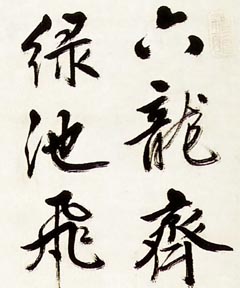 六龍齊
緑池飛